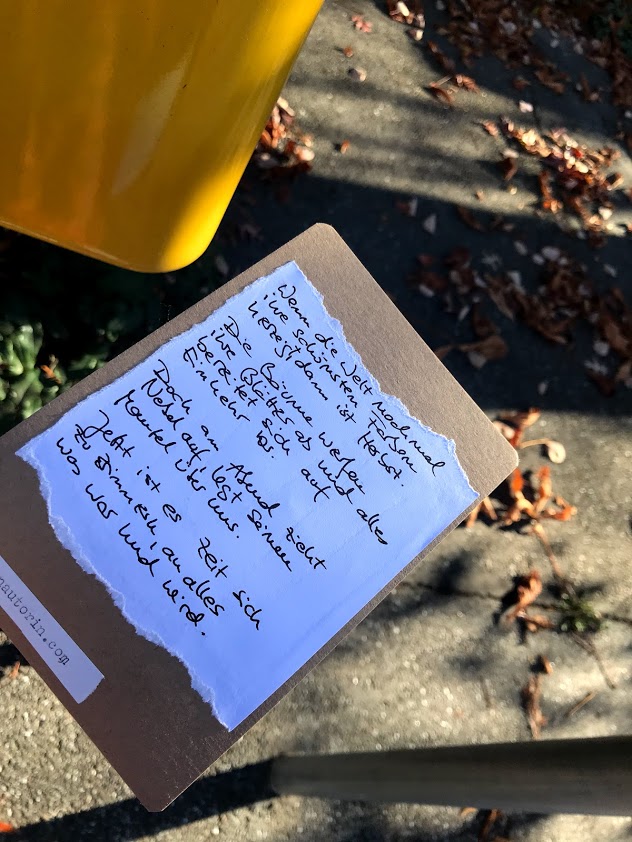 Wenn die Welt nochmal
ihre schönsten Farben
herzeigt dann ist Herbst.
Die Bäume werfen
ihre Blätter ab und alles
bereitet sich auf
Einkehr vor.
Doch am Abend zieht
Nebel auf, legt seinen
Mantel über uns.
Jetzt ist es Zeit sich
zu erinnern, an alles
was war und wird.
nautorin.com